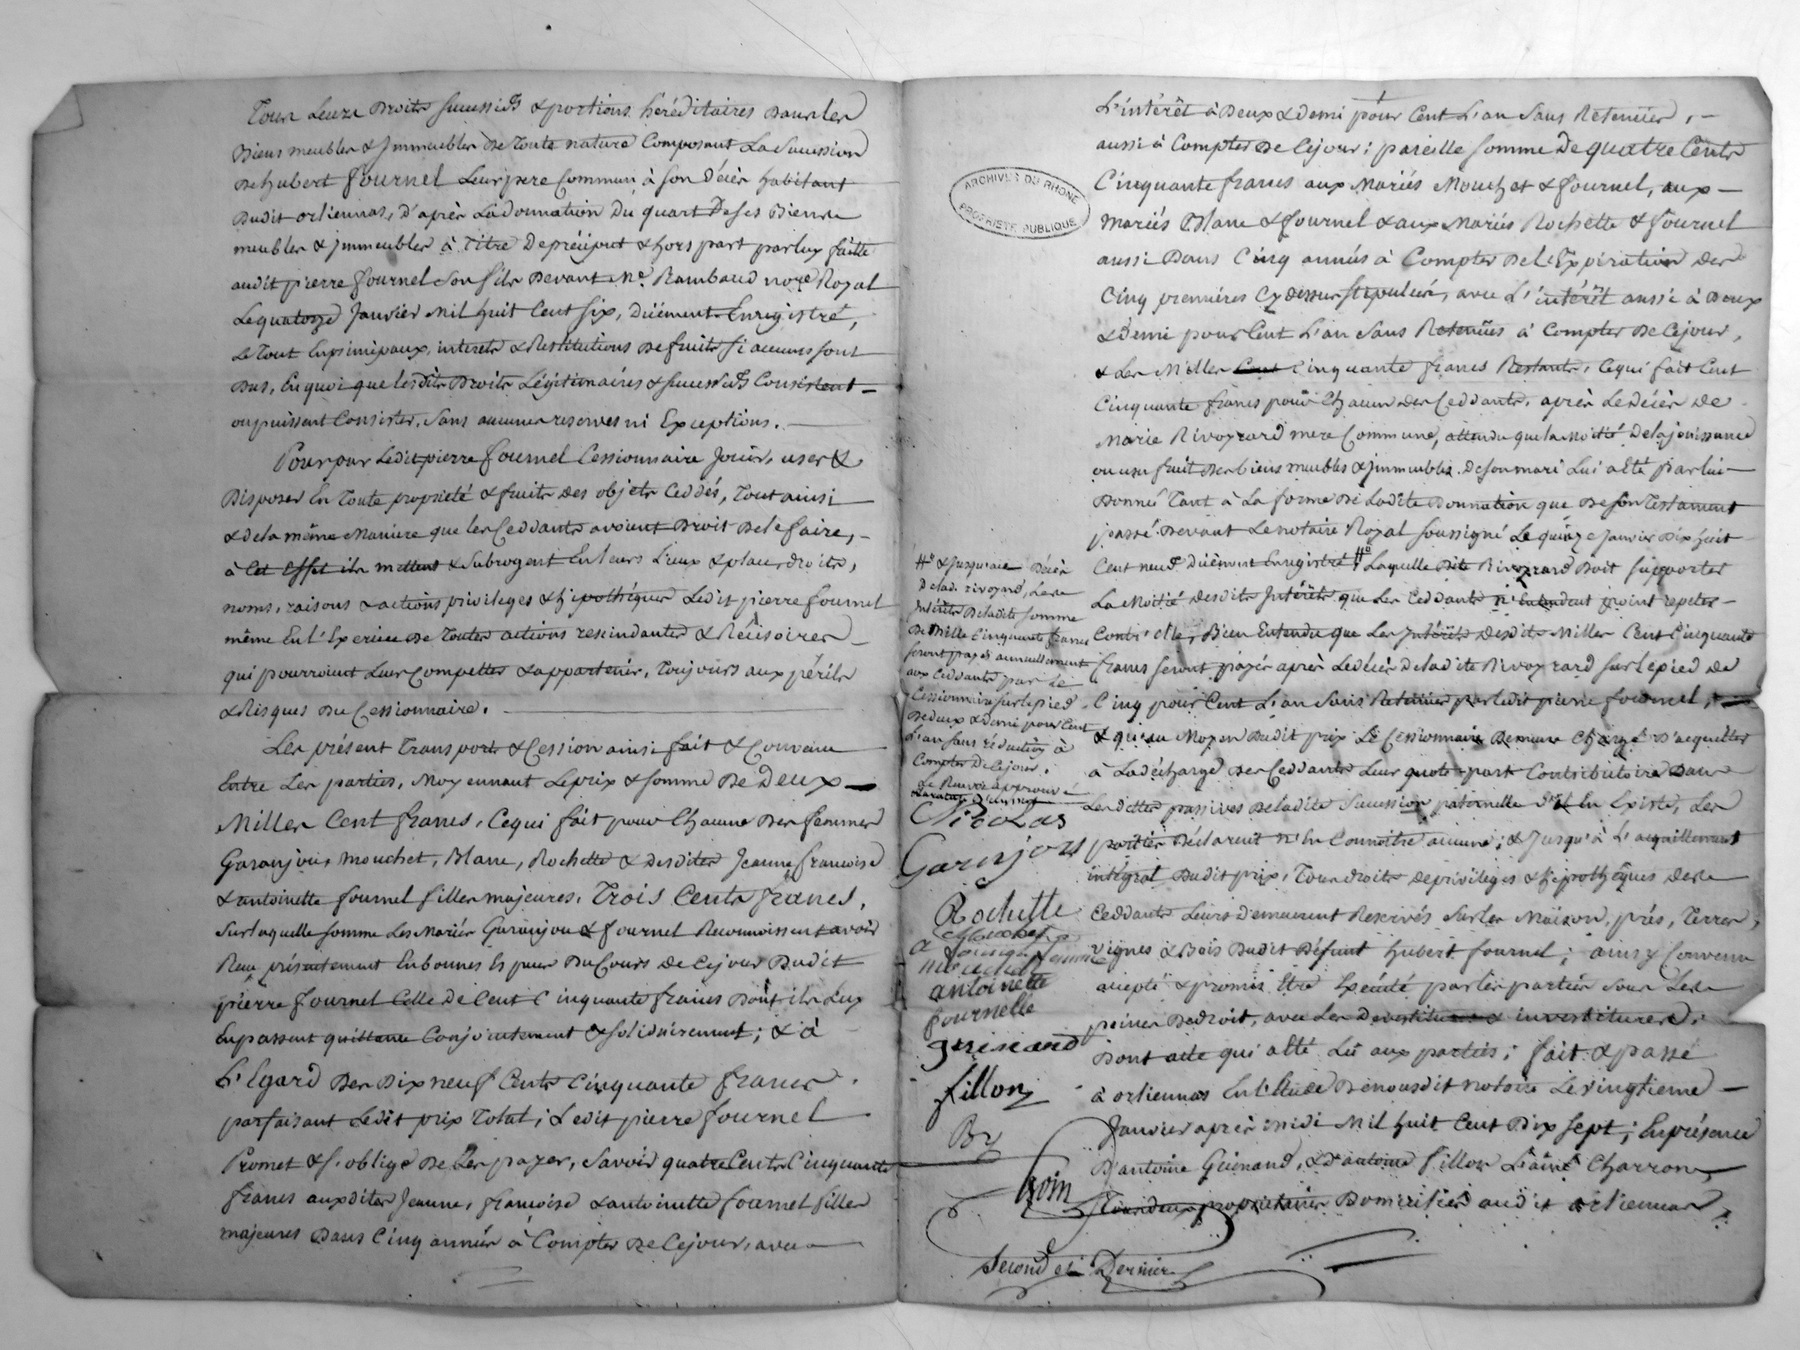 Tous Leurs Droits successifs & portions héréditaires dans les
Biens meubles & Immeubles de toute nature Composant La Succession
de hubert fournel Leur pere Commun à son décès habitant
dudit orliennas, d'après La donnation du quart de ses Biens
meubles & immeubles à titre de préciput & hors part par luy faitte
audit pierre fournel son fils devant Me. Rambaud nore Royal
Le quatorze Janvier mil huit Cent six, düement Enregistré,
Le tout En principaux, interets & Restitutions de fruits si aucuns sont
dus, En quoi que lesdits Droits Légitimaires & successifs Consistent
ou puissent Consister, sans aucunes reserves ni Exceptions.
Pour par Ledit pierre fournel Cessionnaire Jouir, user &
Disposer En toute propriété & fruits des objets Cédés, tout ainsi
& de la même Maniere que les Ceddants avoient Droit de le faire,
à Cet Effet ils mettent & subrogent En leurs Lieux & place, droits,
noms, raisons & actions, privileges & hipothéques Ledit pierre fournel
même En l'Exercice de toutes actions rescindantes & Rescisoires
qui pourroient Leur Competter & appartenir, toujours aux périls
& Risques du Cessionnaire.
Les présent transport & Cession ainsi fait & Convenu
Entre Les parties, moyennant Le prix & somme de Deux
Milles Cent francs, Ce qui fait pour Chacune des femmes
Garonjou, mouchet, Blanc, Rochette & desdites Jeanne, françoise
& antoinette fournel filles majeures, Trois Cents francs,
sur laquelle somme Les Mariés Garonjou & fournel Reconnoissent avoir
Reçu présentement En bonnes Especes du Cours de Cejour dudit
pierre fournel Celle de Cent Cinquante francs dont ils luy
En passent quittance Conjointement & solidairement; & à
L'Egard des Dix neuf Cents Cinquante francs
parfaisant Ledit prix total, Ledit pierre fournel
Promet & s'oblige de Les payer, savoir quatre Cents Cinquante
francs auxdites Jeanne, françoise & antoinette fournel filles
majeures dans Cinq années à Compter de Cejour, avec
L'intérêt à Deux & demi pour Cent L'an sans Retenües,
aussi à Compter de Cejour; pareille somme de quatre Cents
Cinquante francs aux mariés Mouchet & fournel, aux
mariés Blanc & fournel & aux Mariés Rochette & fournel
aussi Dans Cinq années à Compter de L'Expiration des
Cinq premières Cy dessus stipulées, avec L'intérêt aussi à Deux
& Demi pour Cent L'an sans Retenües à Compter de Cejour,
& Les Milles Cent Cinquante francs Restants, Ce qui fait Cent
Cinquante francs pour Chacun des Ceddants, après Le décès de
Marie Rivoyrard mere Commune, attendu que la moitié de la jouissance
ou usufruit des biens meubles & immeubles de son mari Lui a Eté par lui
Donné tant à La forme de Ladite donnation que de son testament
passé devant Le notaire Royal soussigné Le quinze Janvier Dix huit
Cent neuf düement Enregistré #° Laquelle dite Rivoyrard Doit supporter
La Moitié desdits Intérêts que Les Ceddants n'Entendent point repeter
Contr'elle, Bien Entendu que Les Intérêts desdits Milles Cent Cinquante
francs seront payés après Le décès de ladite Rivoyrard sur le pied de
Cinq pour Cent L'an sans Retenües par ledit pierre fournel,
& qu'au Moyen dudit prix Le Cessionnaire Demeure Chargé d'acquitter
à La décharge des Ceddants Leur quote-part Contributoire dans
Les dettes passives de ladite succession paternelle s'il En Existe, Les
parties déclarent n'En Connoître aucune; & Jusqu'à L'aquittement
intégral dudit prix, tous droits de privileges & hipothèques desd.
Ceddants Leurs demeurent Reservés sur les Maison, prés, terres,
vignes & Bois dudit Défunt hubert fournel; ainsy Convenu
accepté & promis Etre Exécuté par les parties sous Les
peines de droit, avec Les devestitures & investitures.
Dont acte qui a Eté Lu aux parties; fait & passé
à orliennas En L'Etude de nousdit notaire Le vingtieme
Janvier après midi Mil huit Cent Dix sept; En présence
d'antoine Guinand, & d'antoine fillon L'ainé Charron,
tous deux proprietaires Domiciliés audit orliennas
#° & Jusqu'au Décès
de lad. rivoyrard, Les
Intérêts de ladite somme
de Mille Cinquante francs
seront payés annuellement
aux Ceddants par Le
Cessionnaire sur le pied
de deux & demi pour Cent
L'an sans réduction à
Compter de Cejour.
Le Renvoi approuvé
Nicolas
Garonjou
Rochette
Mouchet
fournel femme
mouchet
antoinette
fournelle
guinand
fillon
By
Second et Dernier
ARCHIVES DU RHONE
PROPRIETE PUBLIQUE